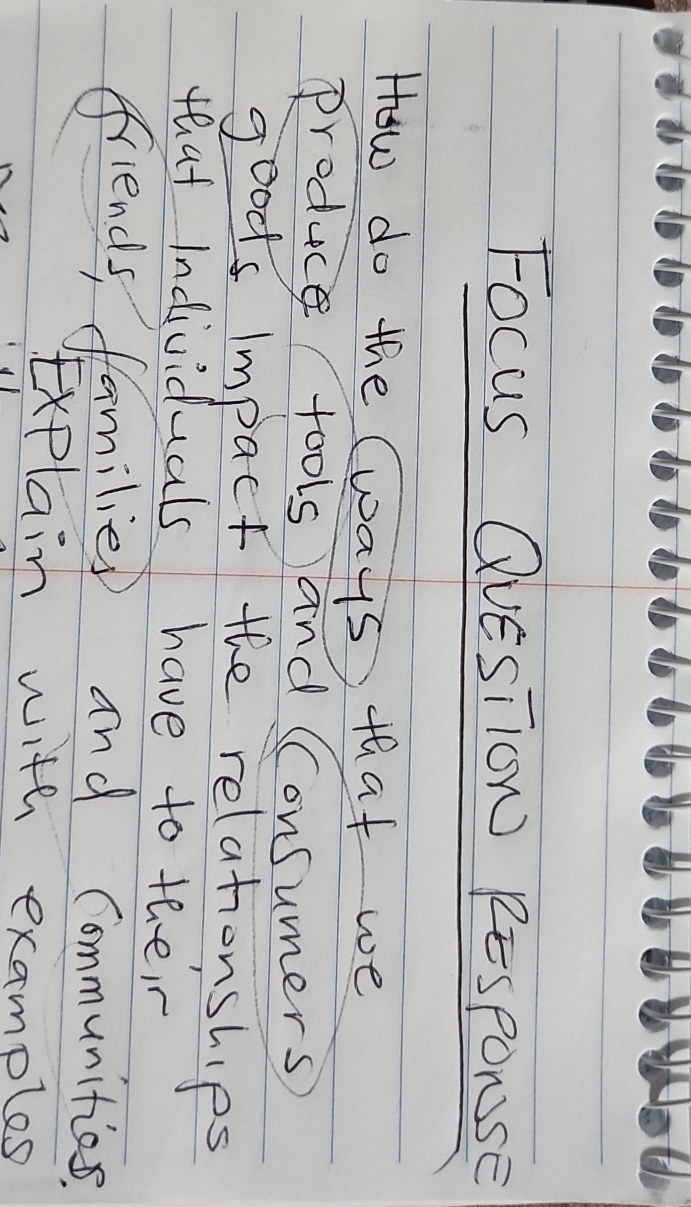 FOCUS QUESTION RESPONSE
How do the ways that we
produce tools and consumers
goods impact the relationships
that Individuals have to their
friends, families and communities.
Explain with examples